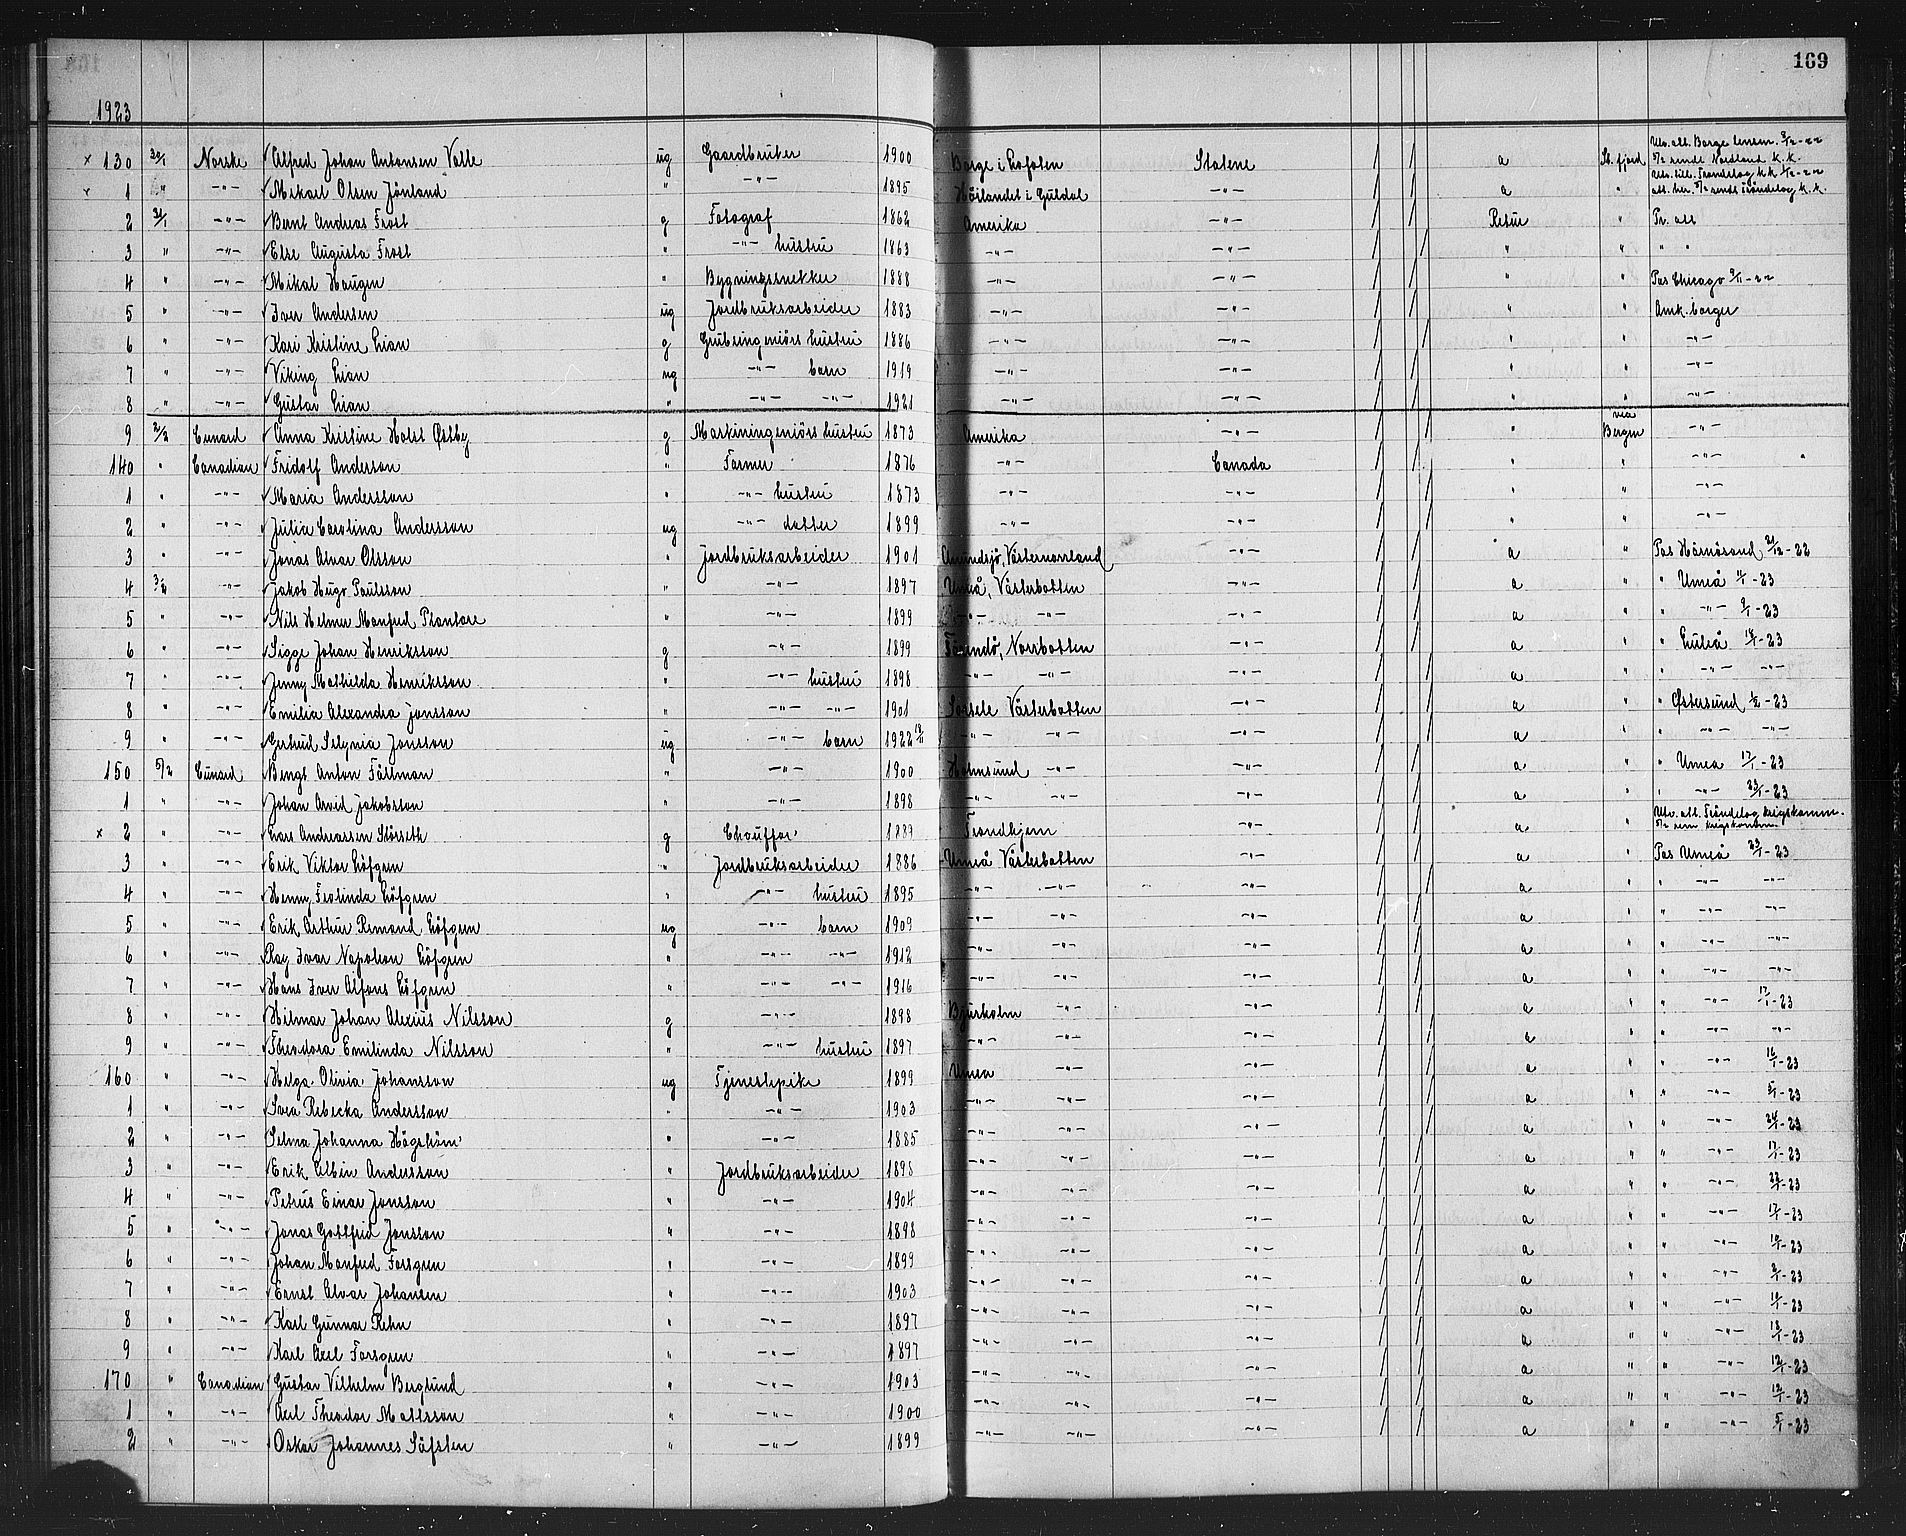 169
1923
× 130 30/1 Norske Alfred Johan Antonsen Valle ug Gaardbruker 1900 Borge i Lofoten Statene / / a St. fjord Utv. att. Borge lensm. 8/12-22 5/2 sendt Nordland k.k.
× 1 " -"- Mikael Olsen Jönland " -"- 1895 Höilandet i Guldal -"- / / a " Utv. till. Tröndelag k.k. att. her. 5/2 sendt Tröndelag k.k.
2 31/1 -"- Bernt Andreas Frost g Fotograf 1862 Amerika -"- / / Retur " Pr. att
3 " -"- Else Augusta Frost " -"- hustru 1863 -"- -"- / / " " " "
4 " -"- Mikal Haugen " Bygningssnekker 1888 -"- -"- / / " " Pas Chicago 9/11-22
5 " -"- Iver Andersen ug Jordbruksarbeider 1883 -"- -"- / / " " Amk. borger
6 " -"- Kari Kristine Lian g Grubeingeniörs hustru 1886 -"- -"- / / " " -"-
7 " -"- Viking Lian ug -"- barn 1919 -"- -"- / / " " -"-
8 " -"- Gustav Lian " -"- -"- 1921 -"- -"- / / " " -"-
9 2/2 Cunard Anna Kristine Holst Østby g Maskiningeniörs hustru 1873 Amerika -"- / / " via Bergen -"-
140 " Canadian Fridolf Anderson " Farmer 1876 -"- Canada / / " " -"-
1 " -"- Maria Andersson " -"- hustru 1873 -"- -"- / / " " -"-
2 " -"- Julia Carolina Andersson ug -"- datter 1899 -"- -"- / / " " -"-
3 " -"- Jonas Alvar Olsson " Jordbruksarbeider 1901 Anundsjö, Västernorrland -"- / / a " Pas Härnösand 21/12-22
4 3/2 -"- Jakob Hugo Paulsson " -"- 1897 Umeå, Västerbotten -"- / / a " " Umeå 11/1-23
5 " -"- Nils Helmer Manfred " -"- 1899 -"- -"- -"- / / a " " -"- 9/1-23
6 " -"- Sigge Johan Henriksson g -"- 1899 Tärendö, Norrbotten -"- / / a " " Luleå 18/1-23
7 " -"- Jenny Mathilda Henriksson " -"- hustru 1898 -"- -"- -"- / / a " " -"- -"-
8 " -"- Emilia Alexandra Jonsson " -"- -"- 1901 Sorsele Västerbotten -"- / / a " " Östersund 1/2-23
9 " -"- Gertrud Selynia Jonsson ug -"- barn 1922 12/11 -"- -"- -"- / / a " " -"- -"-
150 5/2 Cunard Bengt Anton Fällman " -"- 1900 Holmsund -"- -"- / / a " " Umeå 17/1-23
1 " -"- Johan Arvid Jakobsson " -"- 1898 -"- -"- -"- / / a " " -"- 23/1-23
× 2 " -"- Lars Andreassen Störseth g Chauffør 1889 Trondhjem -"- / / a " Utv. att. Tröndelag krigskomm. 5/2 sem krigskomm
3 " -"- Erik Viktor Löfgren " Jordbruksarbeider 1886 Umeå Västerbotten -"- / / a " Pas Umeå 23/1-23
4 " -"- Henny Frolinda Löfgren " -"- hustru 1895 -"- -"- -"- / / a " " -"- -"-
5 " -"- Erik Arthur Remond Löfgren ug -"- barn 1909 -"- -"- -"- / / a " " -"- -"-
6 " -"- Ray Ivar Napoleon Löfgren " -"- -"- 1912 -"- -"- -"- / / a " " -"- -"-
7 " -"- Hans Iver Alfons Löfgren " -"- -"- 1916 -"- -"- -"- / / a " " -"- -"-
8 " -"- Hilmar Johan Alexius Nilsson g -"- 1898 Bjurholm -"- -"- / / a " " -"- 17/1-23
9 " -"- Theodora Emilinda Nilsson " -"- hustru 1897 -"- -"- -"- / / a " " -"- -"-
160 " -"- Helga Olivia Johansson ug Tjenestepike 1899 Umeå -"- -"- / / a " " -"- 16/1-23
1 " -"- Svea Rebecka Andersson " -"- 1903 -"- -"- -"- / / a " " -"- 5/1-23
2 " -"- Selma Johanna Hägström " -"- 1885 -"- -"- -"- / / a " " -"- 24/1-23
3 " -"- Erik Albin Andersson " Jordbruksarbeider 1898 -"- -"- -"- / / a " " -"- 17/1-23
4 " -"- Petrus Einar Jonsson " -"- 1904 -"- -"- -"- / / a " " -"- 22/1-23
5 " -"- Jonas Gottfrid Jonsson " -"- 1898 -"- -"- -"- / / a " " -"- 17/1-23
6 " -"- Johan Manfred Forsgren " -"- 1899 -"- -"- -"- / / a " " -"- 10/1-23
7 " -"- Ernst Alvar Johansen " -"- 1903 -"- -"- -"- / / a " " -"- 9/1-23
8 " -"- Karl Gunnar Rehn " -"- 1897 -"- -"- -"- / / a " " -"- 16/1-23
9 " -"- Karl Axel Forsgren " -"- 1897 -"- -"- -"- / / a " " -"- 18/1-23
170 " Canadian Gustav Vilhelm Berglund " -"- 1903 -"- -"- -"- / / a " " -"- 12/1-23
1 " -"- Axel Theodor Mattsson " -"- 1900 -"- -"- -"- / / a " " -"- 12/1-23
2 " -"- Oskar Johannes Säfsten " -"- 1899 -"- -"- -"- / / a " " -"- 5/1-23